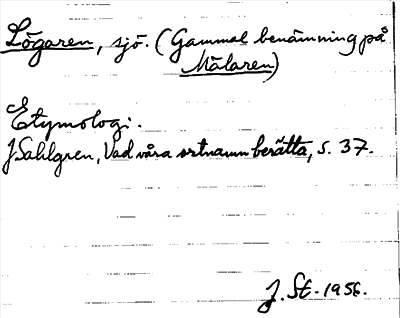 Lögaren, sjö. (Gammal benämning på
Mälaren)
Etymologi.
J. Sahlgren, Vad våra ortnamn berätta, s. 37.
J. St. 1956.